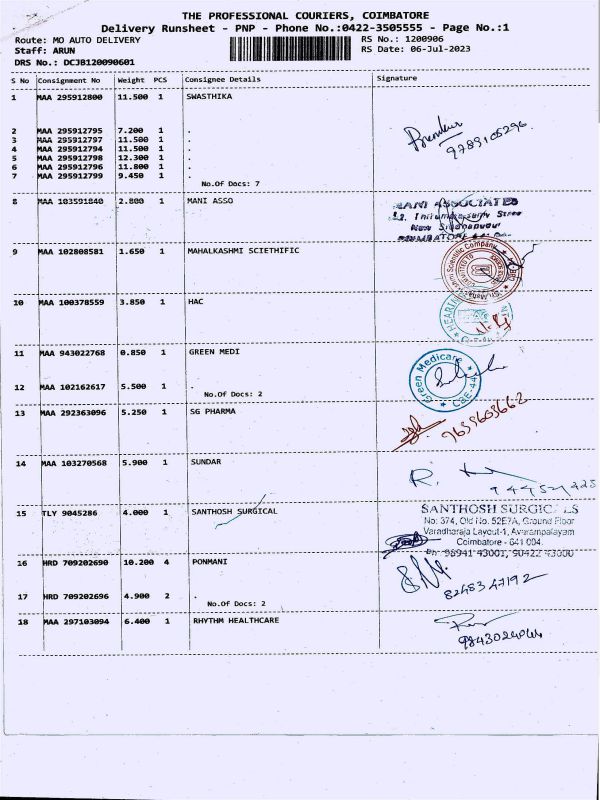 THE PROFESSIONAL COURIERS, COIMBATORE
Delivery Runsheet - PNP - Phone No.:0422-3505555 - Page No.:1
Route: MO AUTO DELIVERY RS No.: 1200906
Staff: ARUN RS Date: 06-Jul-2023
DRS No.: DCJB120090601
S No Consignment No Weight PCS Consignee Details Signature
1 MAA 295912800 11.500 1 SWASTHIKA
2 MAA 295912795 7.200 1 .
3 MAA 295912797 11.500 1 .
4 MAA 295912794 11.500 1 .
5 MAA 295912798 12.300 1 .
6 MAA 295912796 11.800 1 .
7 MAA 295912799 9.450 1 .
9789105296
No.Of Docs: 7
8 MAA 103591840 2.800 1 MANI ASSO
MANI ASSOCIATES
9 MAA 102808581 1.650 1 MAHALKASHMI SCIETHIFIC
Scientific Company
10 MAA 100378559 3.850 1 HAC
11 MAA 943022768 0.850 1 GREEN MEDI
Green Medicare
CBE-44
12 MAA 102162617 5.500 1 .
No.Of Docs: 2
13 MAA 292363096 5.250 1 SG PHARMA
14 MAA 103270568 5.900 1 SUNDAR
15 TLY 9045286 4.000 1 SANTHOSH SURGICAL
SANTHOSH SURGIC LS
No: 374, Old No. 52E7A, Ground Floor
Varadharaja Layout-1, Avarampalayam
Coimbatore - 641 004.
Ph: 98941 43001, 90422 43000
16 HRD 709202690 10.200 4 PONMANI
8248347192
17 HRD 709202696 4.900 2 .
No.Of Docs: 2
18 MAA 297103094 6.400 1 RHYTHM HEALTHCARE